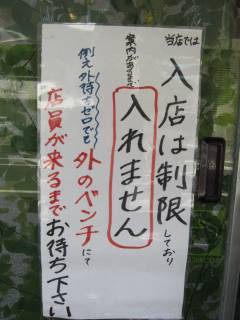 当店では
入店は制限しており
案内があるまで
入れません
例え外待ちゼロでも
外のベンチにて
店員が来るまでお待ち下さい